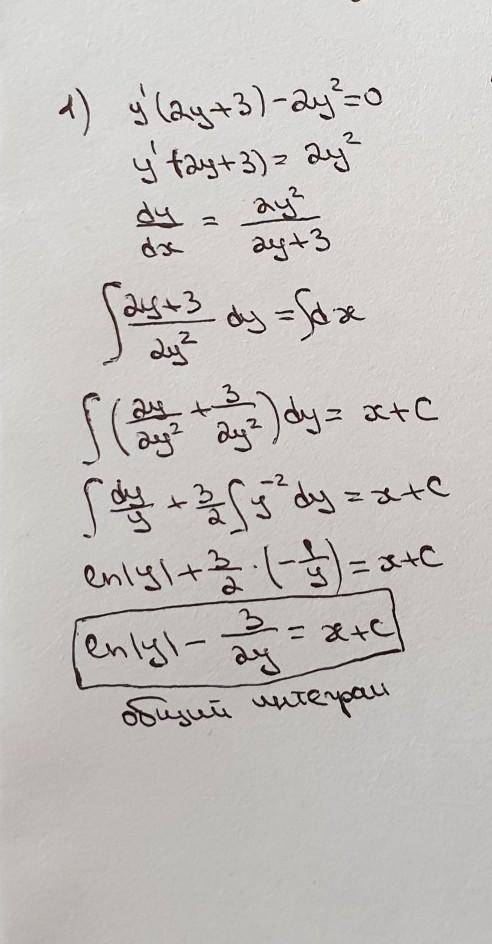 1) y'(2y+3)-2y²=0
y'(2y+3)=2y²
dy/dx = 2y²/(2y+3)
∫ (2y+3)/(2y²) dy = ∫dx
∫ (2y/(2y²) + 3/(2y²)) dy = x+C
∫ dy/y + 3/2 ∫ y⁻² dy = x+C
ln|y| + 3/2 · (-1/y) = x+C
ln|y| - 3/(2y) = x+C
общий интеграл